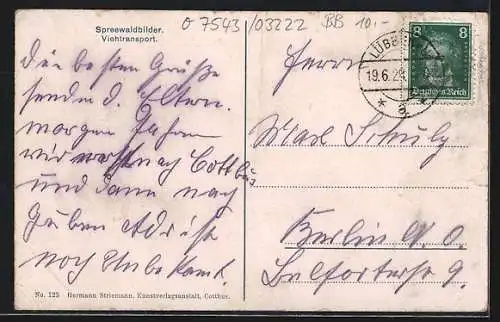 Spreewaldbilder.
Viehtransport.
O 7543/03222 BB 10.-
Die besten Grüße
senden d. Eltern.
morgen fahren
wir nach Cottbus
und dann nach
Guben Adr ist
noch Unbekannt.
No. 125 Hermann Striemann, Kunstverlagsanstalt, Cottbus.
8 8
Deutsches Reich
LÜBB
19.6.2
Herrn
Max Schulz
Berlin N. O.
Belforterstr 9.